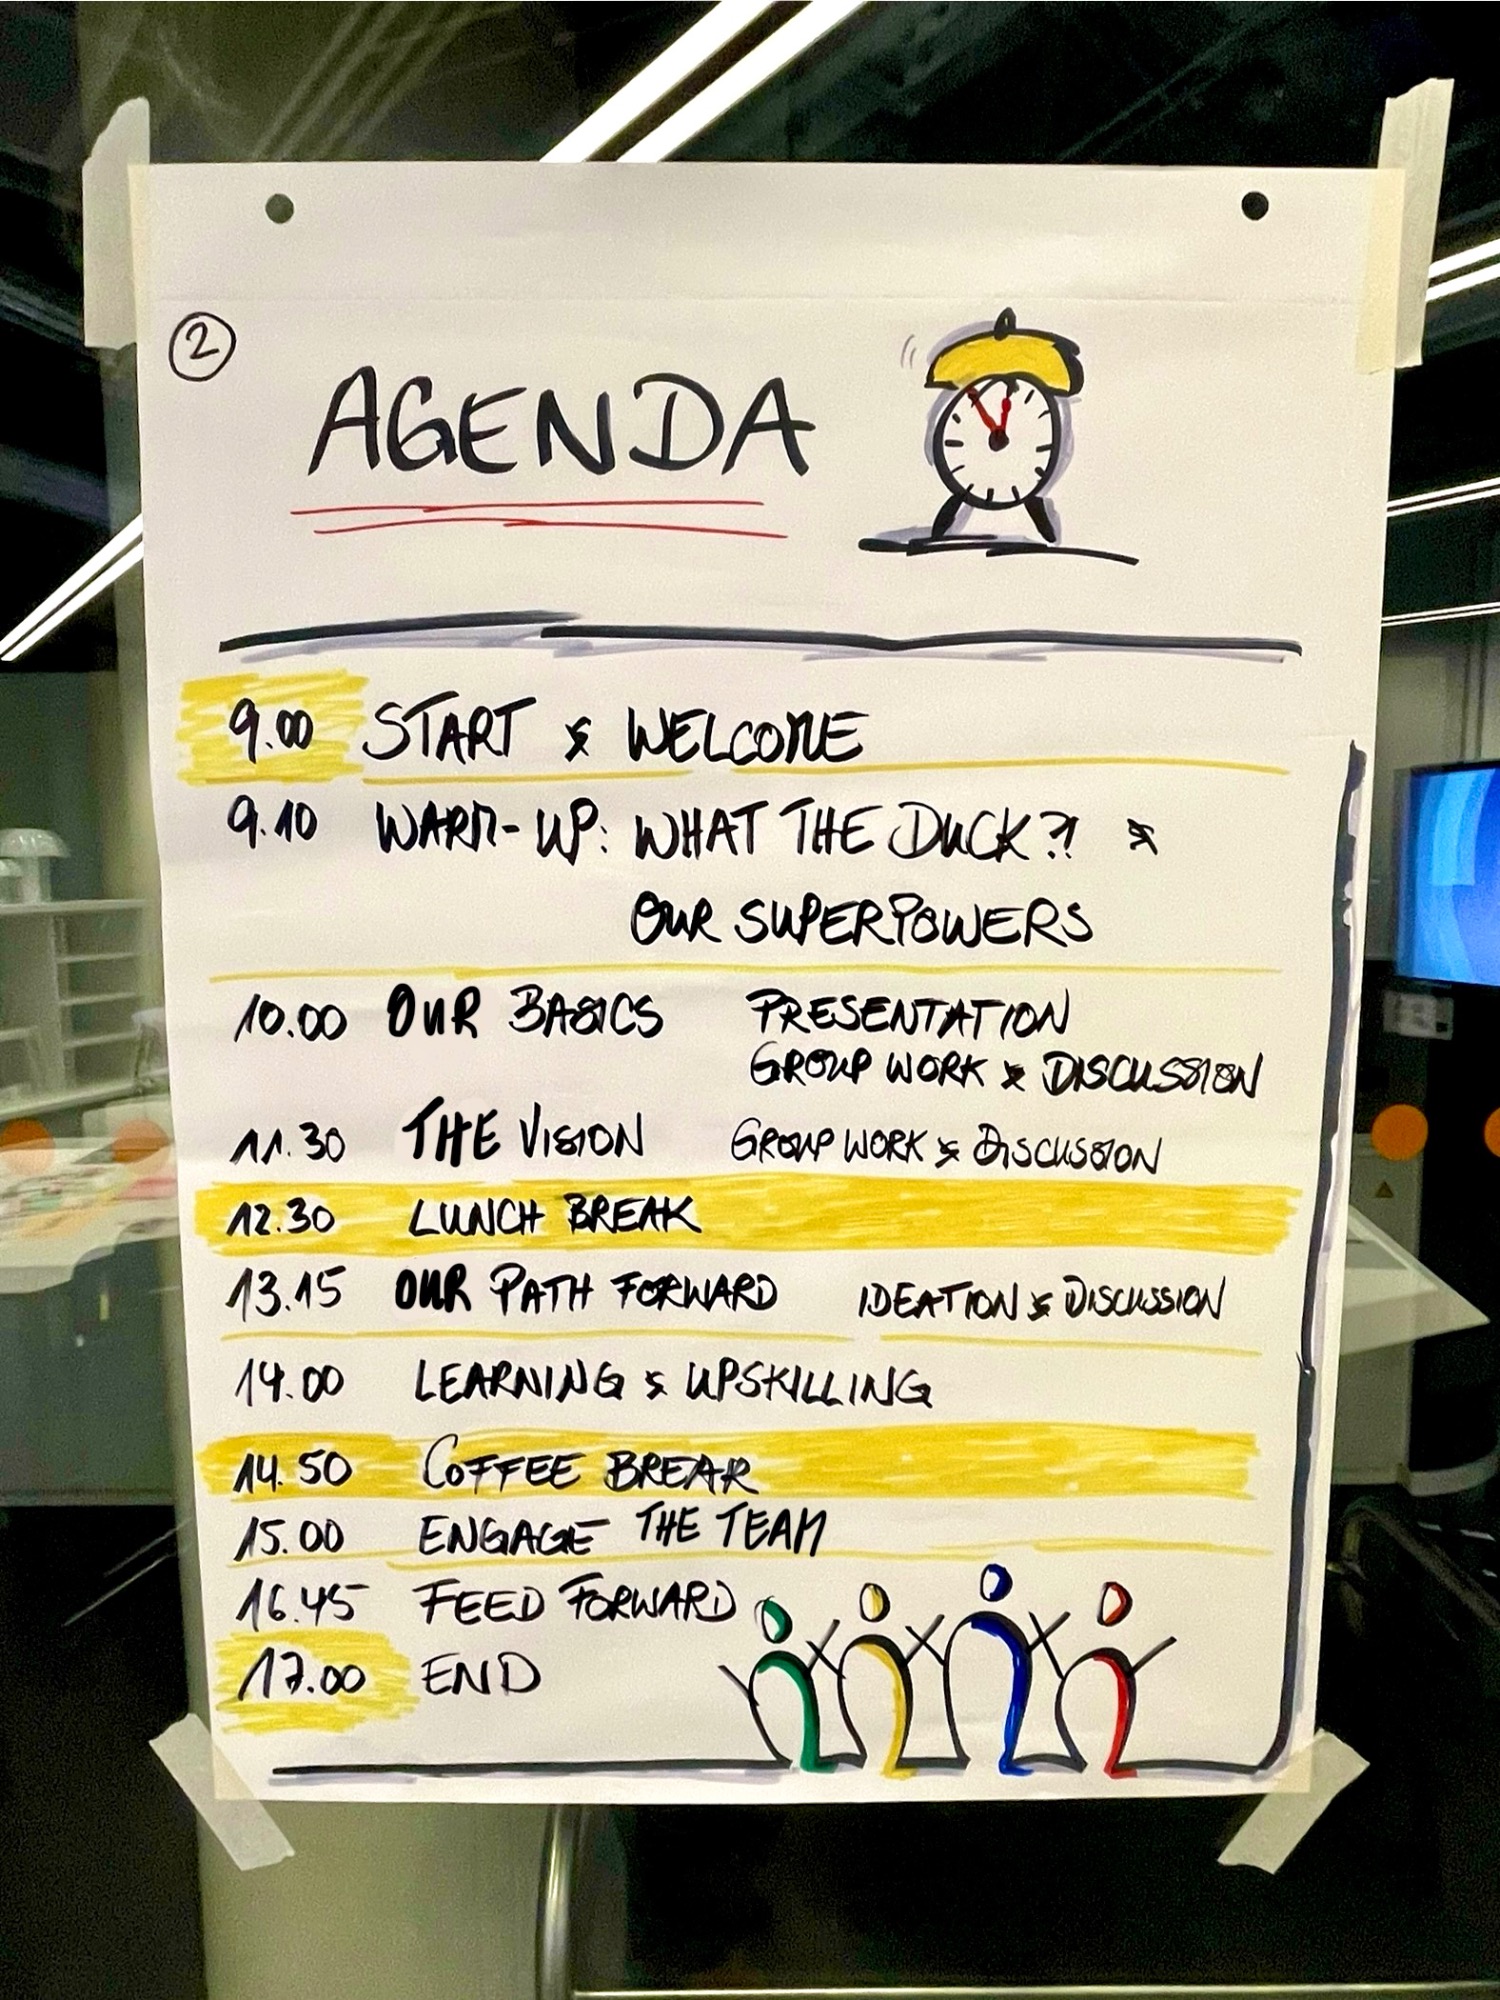 2
AGENDA
9.00 START & WELCOME
9.10 WARM-UP: WHAT THE DUCK?! &
OUR SUPERPOWERS
10.00 OUR BASICS PRESENTATION
GROUP WORK & DISCUSSION
11.30 THE VISION GROUP WORK & DISCUSSION
12.30 LUNCH BREAK
13.15 OUR PATH FORWARD IDEATION & DISCUSSION
14.00 LEARNING & UPSKILLING
14.50 COFFEE BREAK
15.00 ENGAGE THE TEAM
16.45 FEED FORWARD
17.00 END